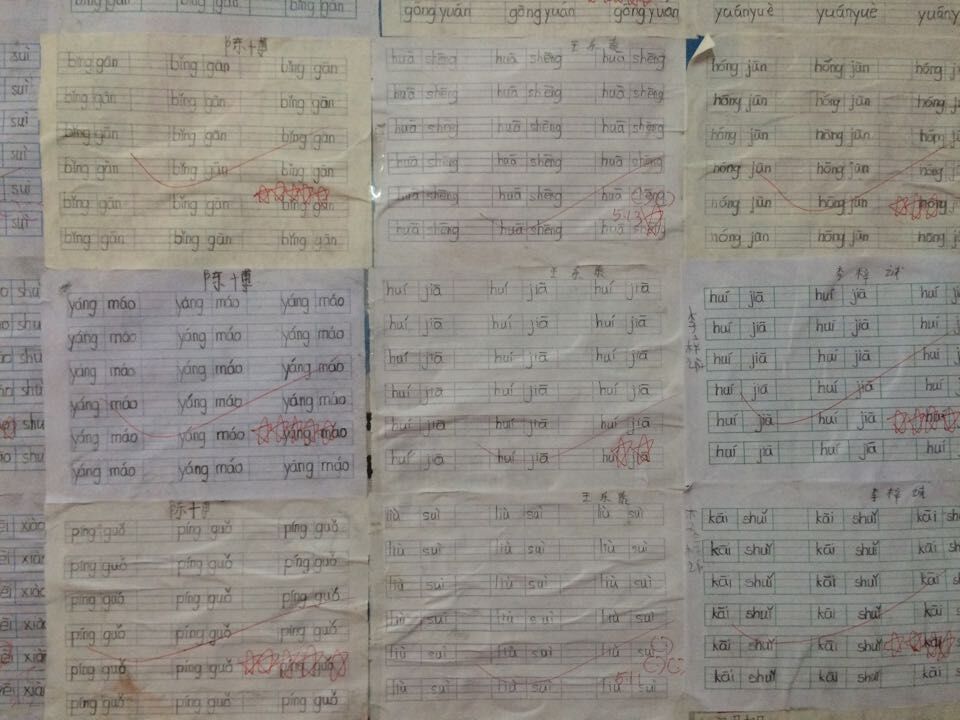 gōng yuán gōng yuán gōng yuán
yuányuè yuányuè
suì
suì
suì
suì
suì
suì
陈十博
bǐng gān bǐng gān bǐng gān
bǐng gān bǐng gān bǐng gān
bǐng gān bǐng gān bǐng gān
bǐng gān bǐng gān bǐng gān
bǐng gān bǐng gān bǐng gān
bǐng gān bǐng gān bǐng gān
王乐
huā shēng huā shēng huā shēng
huā shēng huā shēng huā shēng
huā shēng huā shēng huā shēng
huā shēng huā shēng huā shēng
huā shēng huā shēng huā shēng
huā shēng huā shēng huā shēng
5.13
hóng jūn hóng jūn hóng
hóng jūn hóng jūn hóng
hóng jūn hóng jūn hóng
hóng jūn hóng jūn hóng
hóng jūn hóng jūn hóng
hóng jūn hóng jūn hóng
陈十博
yáng máo yáng máo yáng máo
yáng máo yáng máo yáng máo
yáng máo yáng máo yáng máo
yáng máo yáng máo yáng máo
yáng máo yáng máo yáng máo
yáng máo yáng máo yáng máo
王乐
huí jiā huí jiā huí jiā
huí jiā huí jiā huí jiā
huí jiā huí jiā huí jiā
huí jiā huí jiā huí jiā
huí jiā huí jiā huí jiā
huí jiā huí jiā huí jiā
李梓
huí jiā huí jiā huí
huí jiā huí jiā huí
huí jiā huí jiā huí
huí jiā huí jiā huí
huí jiā huí jiā huí
huí jiā huí jiā huí
陈十博
píng guǒ píng guǒ píng guǒ
píng guǒ píng guǒ píng guǒ
píng guǒ píng guǒ píng guǒ
píng guǒ píng guǒ píng guǒ
píng guǒ píng guǒ píng guǒ
píng guǒ píng guǒ píng guǒ
王乐
liù suì liù suì liù suì
liù suì liù suì liù suì
liù suì liù suì liù suì
liù suì liù suì liù suì
liù suì liù suì liù suì
liù suì liù suì liù suì
李梓
kāi shuǐ kāi shuǐ kāi shuǐ
kāi shuǐ kāi shuǐ kāi shuǐ
kāi shuǐ kāi shuǐ kāi shuǐ
kāi shuǐ kāi shuǐ kāi shuǐ
kāi shuǐ kāi shuǐ kāi shuǐ
kāi shuǐ kāi shuǐ kāi shuǐ